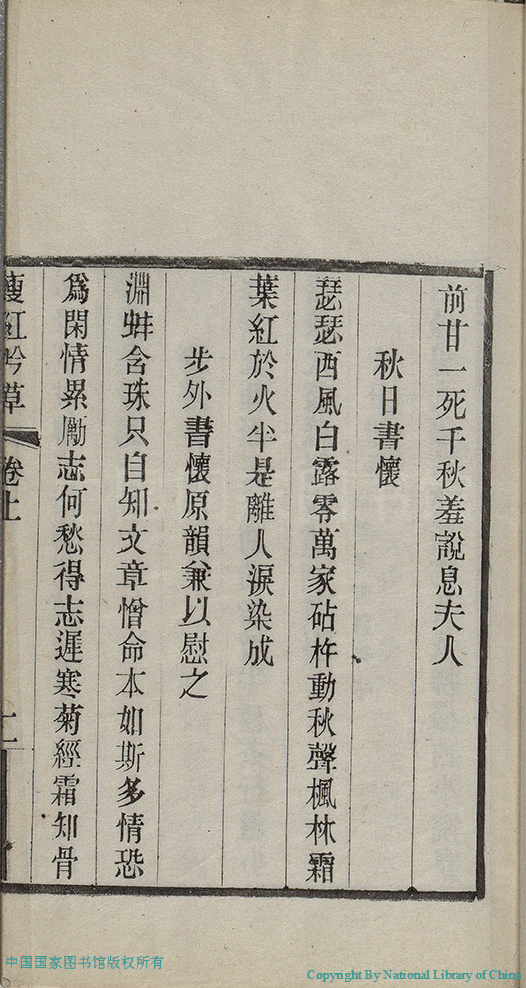 前甘一死千秋羞說息夫人
秋日書懷
瑟瑟西風白露零萬家砧杵動秋聲楓林霜
葉紅於火半是離人淚染成
步外書懷原韻兼以慰之
淵蚌含珠只自知文章憎命本如斯多情恐
爲閑情累勵志何愁得志遲寒菊經霜知骨
瘦紅吟草 卷上
中国国家图书馆版权所有
Copyright By National Library of China